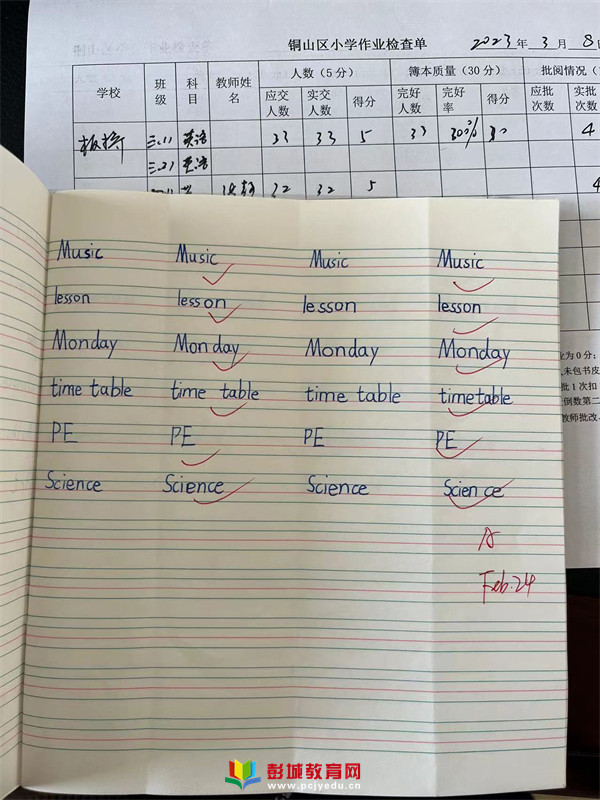 铜山区小学作业检查单 2023年 3月 8日
学校 班级 科目 教师姓名 人数（5分） 簿本质量（30分） 批阅情况
应交人数 实交人数 得分 完好人数 完好率 得分 应批次数 实批次数
三.(1) 英语 33 33 5 33 100% 30 4
三.(2) 英语
32 32 5 4
业为0分；
未包书皮
批1次扣
倒数第二
教师批改
Music Music Music Music
lesson lesson lesson lesson
Monday Monday Monday Monday
time table time table time table timetable
PE PE PE PE
Science Science Science Science
A
Feb.24
彭城教育网
www.pcjyedu.cn